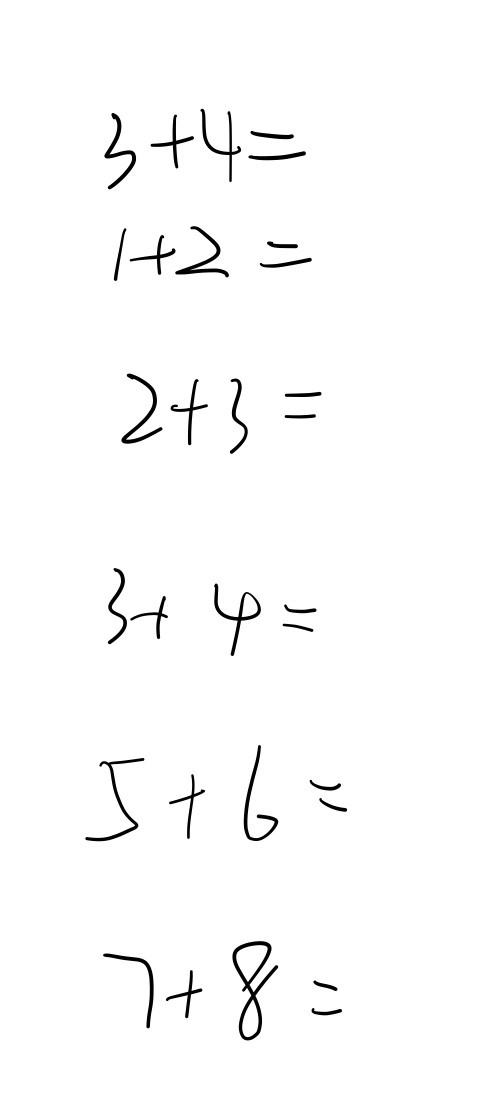 3+4=
1+2=
2+3=
3+4=
5+6=
7+8=